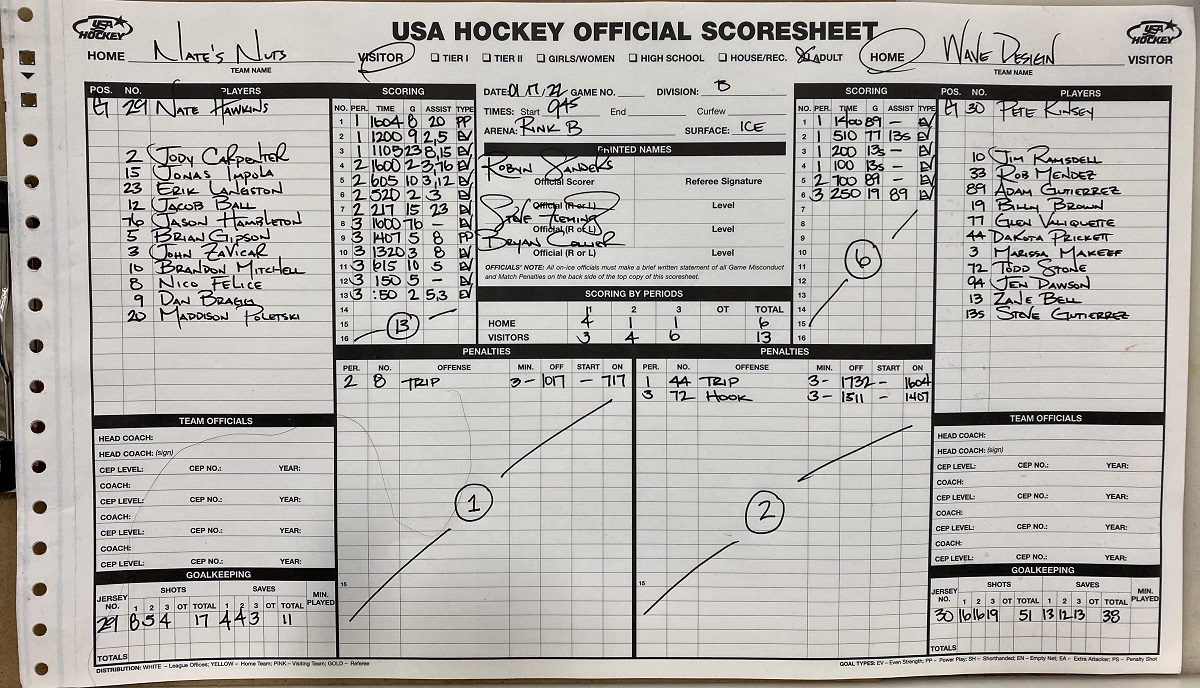 USA HOCKEY OFFICIAL SCORESHEET
USA HOCKEY
USA HOCKEY
HOME NATE'S NUTS VISITOR
TEAM NAME
☐ TIER I ☐ TIER II ☐ GIRLS/WOMEN ☐ HIGH SCHOOL ☐ HOUSE/REC. ☒ ADULT
HOME WAVE DESIGN VISITOR
TEAM NAME
POS. NO. PLAYERS
G 29 NATE HAWKINS
2 JODY CARPENTER
15 JONAS IMPOLA
23 ERIK LANGSTON
12 JACOB BALL
76 JASON HAMBLETON
5 BRIAN GIPSON
3 JOHN ZAVICAR
10 BRANDON MITCHELL
8 NICO FELICE
9 DAN BRAGG
20 MADDISON POLETSKI
SCORING
NO. PER. TIME G ASSIST TYPE
1 1 1604 8 20 PP
2 1 1200 9 2,5 EV
3 1 1105 23 8,15 EV
4 2 1600 2 3,76 EV
5 2 605 10 3,12 EV
6 2 520 2 3 EV
7 2 217 15 23 EV
8 3 1600 76 - EV
9 3 1407 5 8 PP
10 3 1320 3 8 EV
11 3 615 10 5 EV
12 3 150 5 - EV
13 3 :50 2 5,3 EV
14
15
16
13
DATE: 01/17/22 GAME NO. DIVISION: B
TIMES: Start 945 End Curfew
ARENA: RINK B SURFACE: ICE
PRINTED NAMES
ROBYN SANDERS
Official Scorer Referee Signature
Official (R or L) Level
STEVE FLEMING
Official (R or L) Level
BRYAN COLLIER
Official (R or L) Level
OFFICIALS' NOTE: All on-ice officials must make a brief written statement of all Game Misconduct
and Match Penalties on the back side of the top copy of this scoresheet.
SCORING BY PERIODS
1 2 3 OT TOTAL
HOME 4 1 1 6
VISITORS 3 4 6 13
SCORING
NO. PER. TIME G ASSIST TYPE
1 1 1400 89 - EV
2 1 510 77 13s EV
3 1 200 13s - EV
4 1 100 13s - EV
5 2 700 89 - EV
6 3 250 19 89 EV
7
8
9
10
11
12
13
14
15
16
6
POS. NO. PLAYERS
G 30 PETE KINSEY
10 JIM RAMSDELL
33 ROB MENDEZ
89 ADAM GUTIERREZ
19 BILLY BROWN
77 GLEN VALIQUETTE
44 DAKOTA PRICKETT
3 MARISSA MAKEEF
72 TODD STONE
94 JEN DAWSON
13 ZANE BELL
13s STEVE GUTIERREZ
PENALTIES
PER. NO. OFFENSE MIN. OFF START ON
2 8 TRIP 3- 1017 - 717
15
1
PENALTIES
PER. NO. OFFENSE MIN. OFF START ON
1 44 TRIP 3- 1732 - 1604
3 72 HOOK 3- 1511 - 1407
15
2
TEAM OFFICIALS
HEAD COACH:
HEAD COACH: (sign)
CEP LEVEL: CEP NO.: YEAR:
COACH:
CEP LEVEL: CEP NO.: YEAR:
COACH:
CEP LEVEL: CEP NO.: YEAR:
COACH:
CEP LEVEL: CEP NO.: YEAR:
GOALKEEPING
JERSEY NO. SHOTS SAVES MIN. PLAYED
1 2 3 OT TOTAL 1 2 3 OT TOTAL
29 8 5 4 17 4 4 3 11
TOTALS
TEAM OFFICIALS
HEAD COACH:
HEAD COACH: (sign)
CEP LEVEL: CEP NO.: YEAR:
COACH:
CEP LEVEL: CEP NO.: YEAR:
COACH:
CEP LEVEL: CEP NO.: YEAR:
COACH:
CEP LEVEL: CEP NO.: YEAR:
GOALKEEPING
JERSEY NO. SHOTS SAVES MIN. PLAYED
1 2 3 OT TOTAL 1 2 3 OT TOTAL
30 16 16 19 51 13 12 13 38
TOTALS
DISTRIBUTION: WHITE – League Offices; YELLOW – Home Team; PINK – Visiting Team; GOLD – Referee
GOAL TYPES: EV – Even Strength; PP – Power Play; SH – Shorthanded; EN – Empty Net; EA – Extra Attacker; PS – Penalty Shot